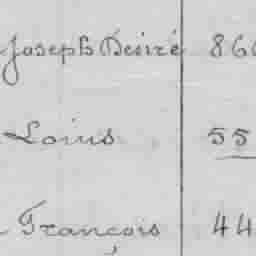 Joseph Desiré 860
Loius 55
François 44